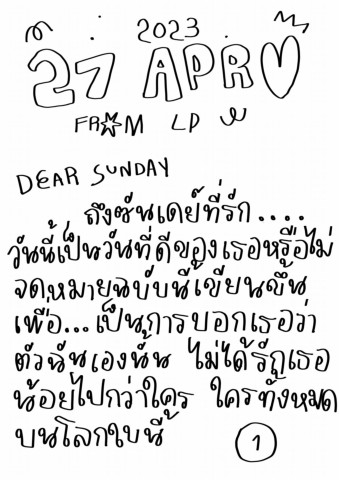 2023
27 APR
FROM LD
DEAR SUNDAY
ถึงซันเดย์ที่รัก....
วันนี้เป็นวันที่ดีของเธอหรือไม่
จดหมายฉบับนี้เขียนขึ้น
เพื่อ...เป็นการบอกเธอว่า
ตัวฉันเองนั้น ไม่ได้รักเธอ
น้อยไปกว่าใคร ใครทั้งหมด
บนโลกใบนี้
1